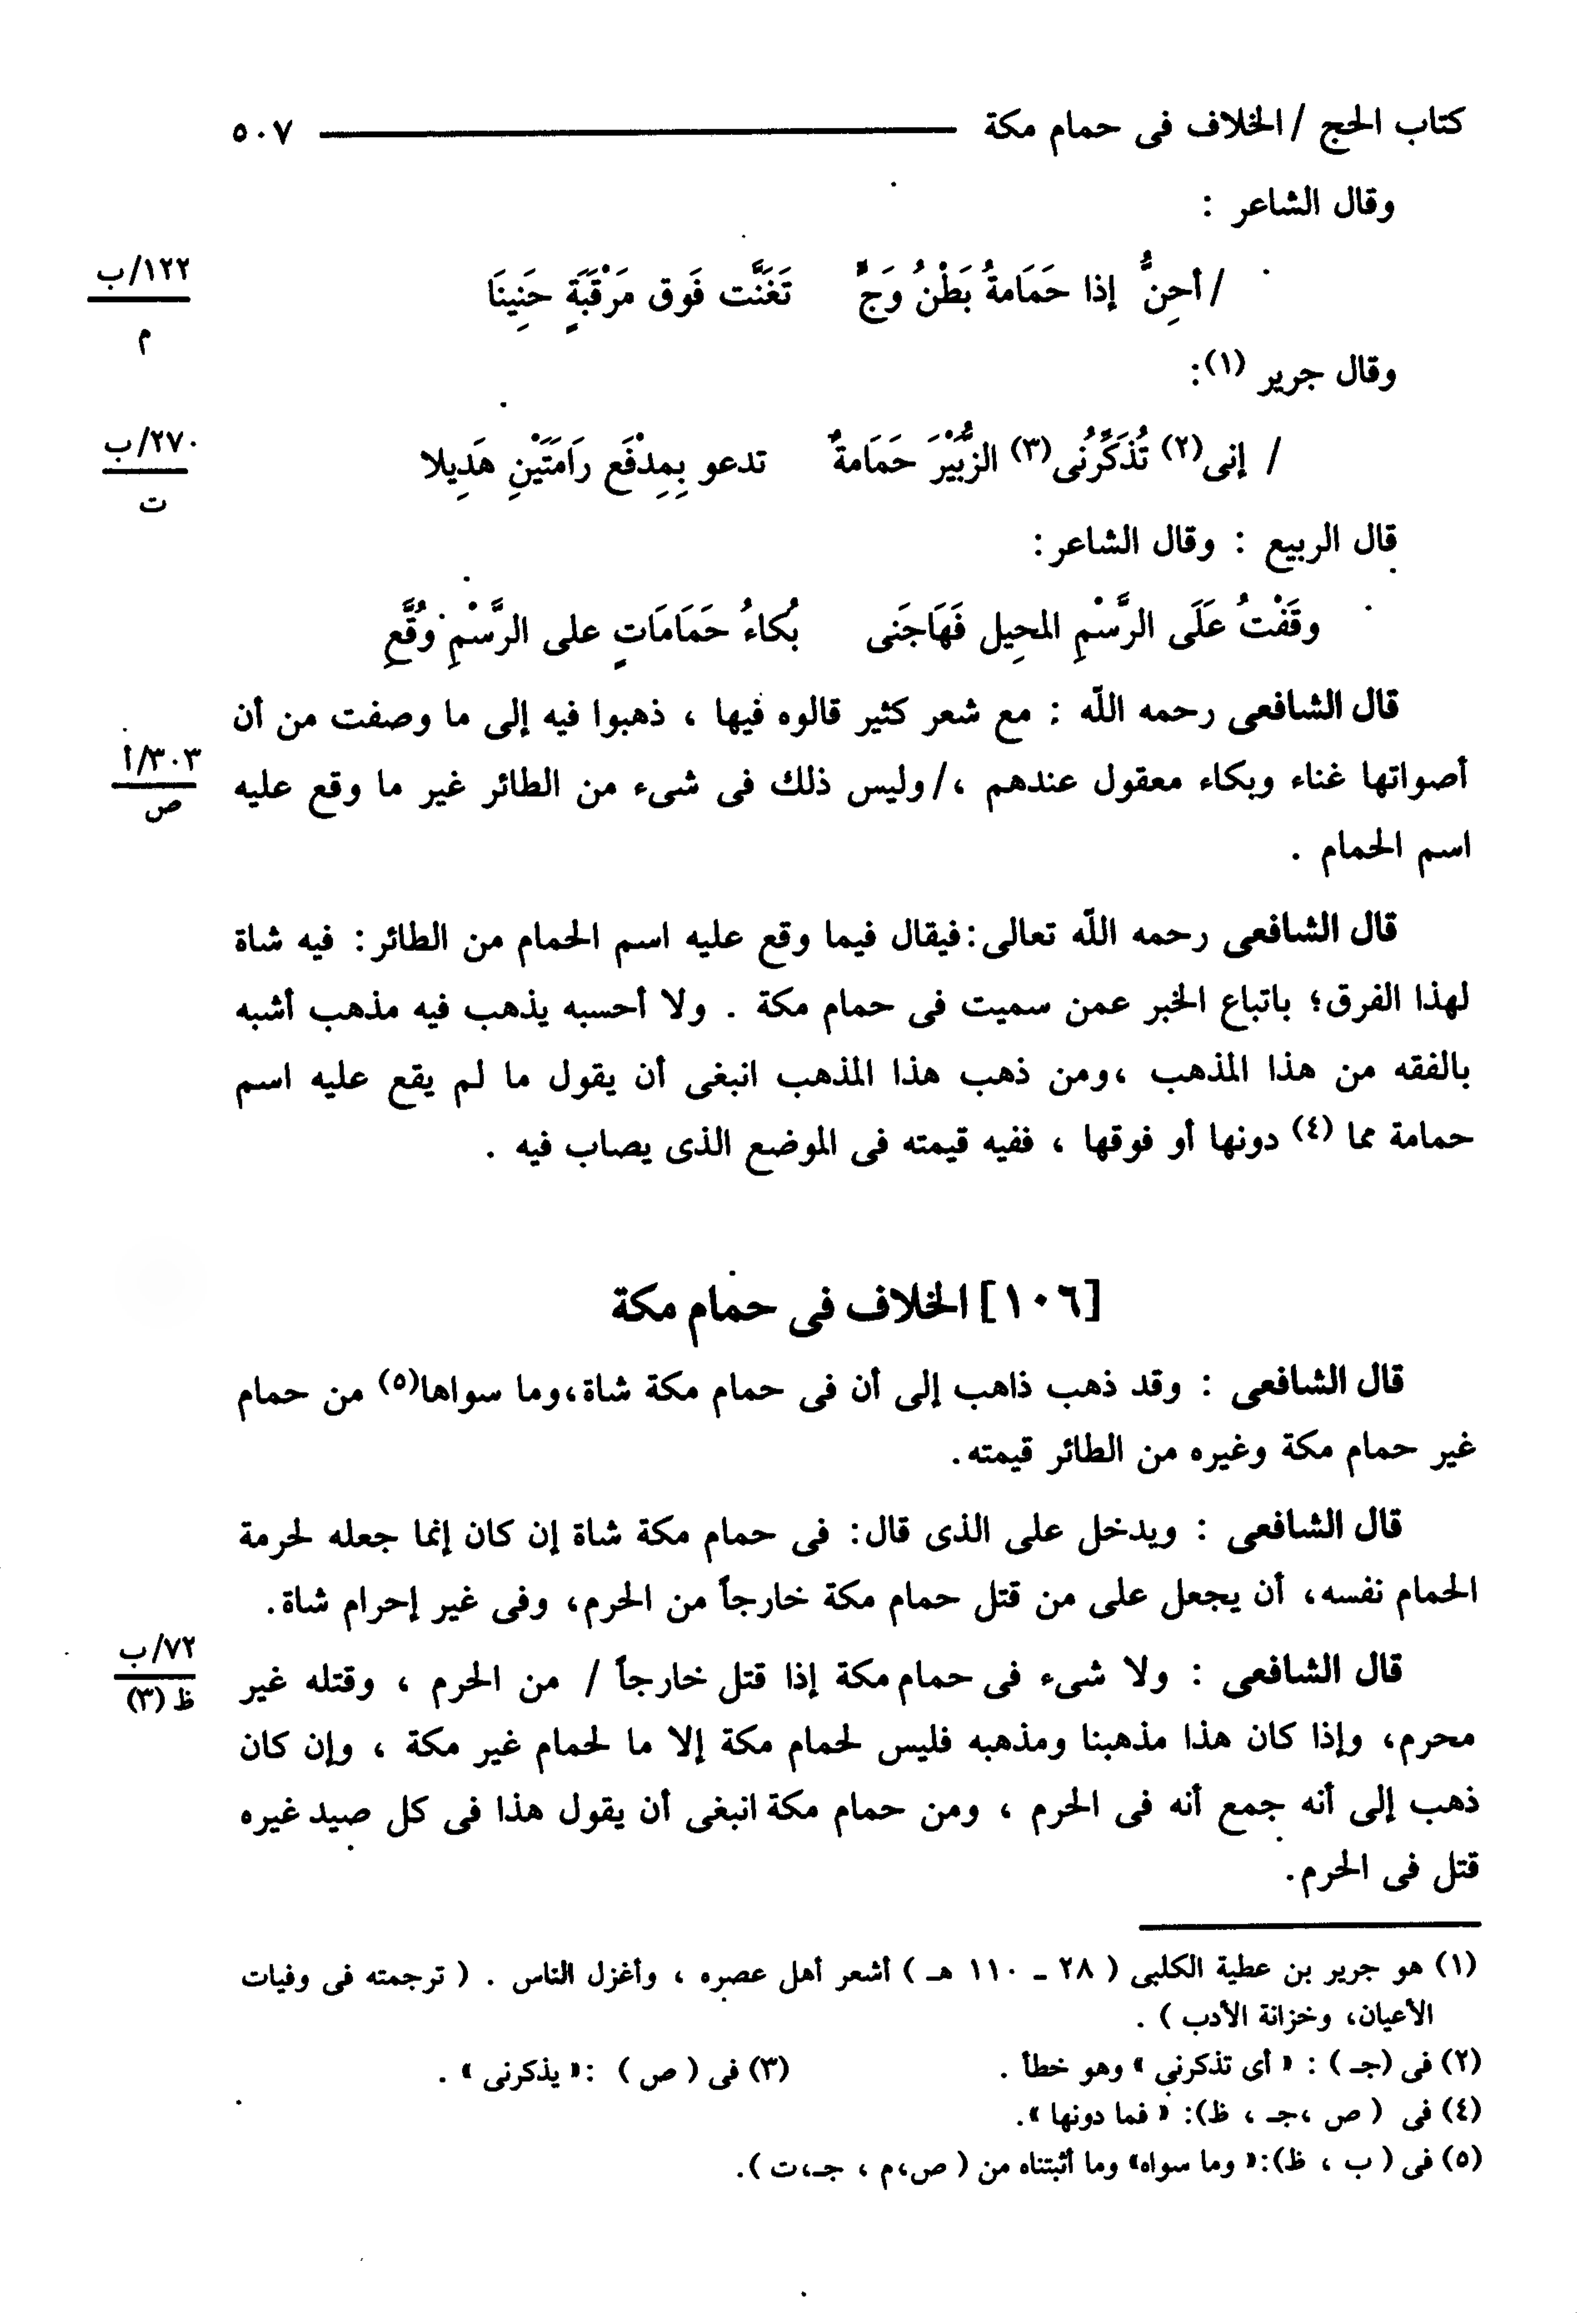 كتاب الحج / الخلاف فى حمام مكة ٥٠٧
وقال الشاعر :
/ أحِنُّ إذا حَمَامةُ بَطْنُ وَجٍّ تَغَنَّت فَوق مَرْقَبَةٍ حَنِينَا
١٢٢/ب
م
وقال جرير (١):
/ إنى(٢) تُذَكِّرُنى(٣) الزُّبَيْرَ حَمَامةٌ تدعو بِمِدْفَع رَامَتَيْنِ هَدِيلا
٢٧٠/ب
ت
قال الربيع : وقال الشاعر:
وقَفْتُ عَلَى الرَّسْمِ المحِيل فَهَاجَنَى بُكاءُ حَمَامَاتٍ على الرَّسْمِ وُقَّعِ
قال الشافعى رحمه اللّه : مع شعر كثير قالوه فيها ، ذهبوا فيه إلى ما وصفت من أن
أصواتها غناء وبكاء معقول عندهم ،/ وليس ذلك فى شىء من الطائر غير ما وقع عليه
٣٠٣/أ
ص
اسم الحمام .
قال الشافعى رحمه اللّه تعالى:فيقال فيما وقع عليه اسم الحمام من الطائر: فيه شاة
لهذا الفرق؛ باتباع الخبر عمن سميت فى حمام مكة . ولا أحسبه يذهب فيه مذهب أشبه
بالفقه من هذا المذهب ،ومن ذهب هذا المذهب انبغى أن يقول ما لم يقع عليه اسم
حمامة مما (٤) دونها أو فوقها ، ففيه قيمته فى الموضع الذى يصاب فيه .
[١٠٦] الخلاف فى حمام مكة
قال الشافعى : وقد ذهب ذاهب إلى أن فى حمام مكة شاة،وما سواها(٥) من حمام
غير حمام مكة وغيره من الطائر قيمته.
قال الشافعى : ويدخل على الذى قال: فى حمام مكة شاة إن كان إنما جعله لحرمة
الحمام نفسه، أن يجعل على من قتل حمام مكة خارجاً من الحرم، وفى غير إحرام شاة.
قال الشافعى : ولا شىء فى حمام مكة إذا قتل خارجاً / من الحرم ، وقتله غير
٧٢/ب
ظ (٣)
محرم، وإذا كان هذا مذهبنا ومذهبه فليس لحمام مكة إلا ما لحمام غير مكة ، وإن كان
ذهب إلى أنه جمع أنه فى الحرم ، ومن حمام مكة انبغى أن يقول هذا فى كل صيد غيره
قتل فى الحرم.
(١) هو جرير بن عطية الكلبى ( ٢٨ ـ ١١٠ هـ ) أشعر أهل عصره ، وأغزل الناس . ( ترجمته فى وفيات
الأعيان، وخزانة الأدب ) .
(٢) فى (جـ ) : « أى تذكرنى » وهو خطأ . (٣) فى ( ص ) :« يذكرنى » .
(٤) فى ( ص ،جـ ، ظ): « فما دونها ».
(٥) فى ( ب ، ظ):« وما سواه» وما أثبتناه من ( ص،م ، جـ،ت ).